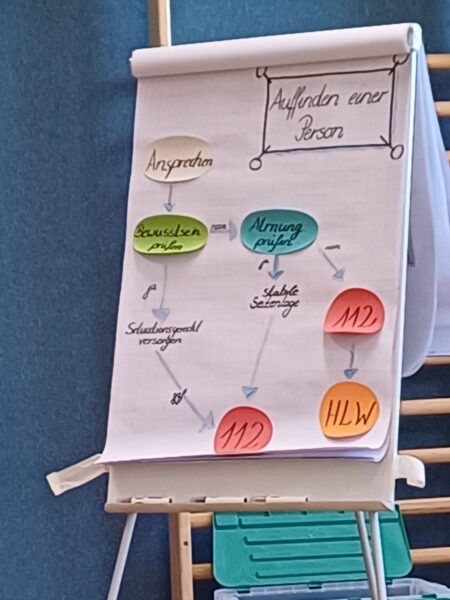 Auffinden einer
Person
Ansprechen
Bewusstsein
prüfen
nein
Atmung
prüfen
ja
nein
stabile
Seitenlage
112
ja
Situationsgerecht
versorgen
HLW
ggf
112